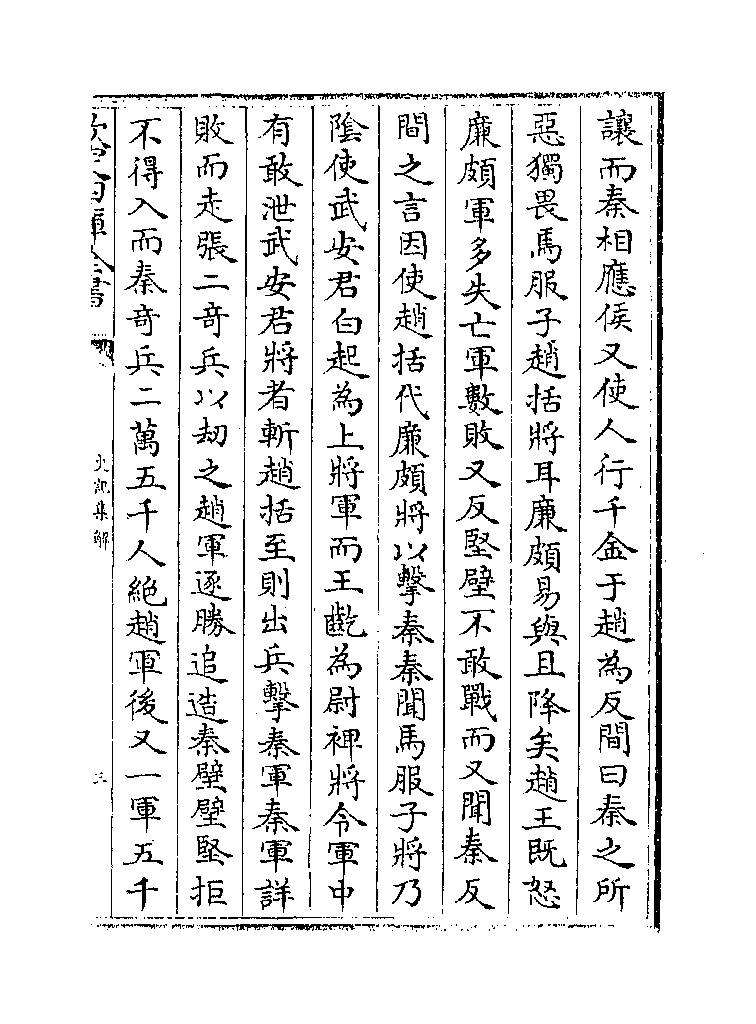 讓而秦相應侯又使人行千金于趙為反間曰秦之所
惡獨畏馬服子趙括將耳廉頗易與且降矣趙王既怒
廉頗軍多失亡軍數敗又反堅壁不敢戰而又聞秦反
間之言因使趙括代廉頗將以擊秦秦聞馬服子將乃
陰使武安君白起為上將軍而王齕為尉裨將令軍中
有敢泄武安君將者斬趙括至則出兵擊秦軍秦軍詳
敗而走張二奇兵以刼之趙軍逐勝追造秦壁壁堅拒
不得入而秦奇兵二萬五千人絶趙軍後又一軍五千
欽定四庫全書
史記集解
三